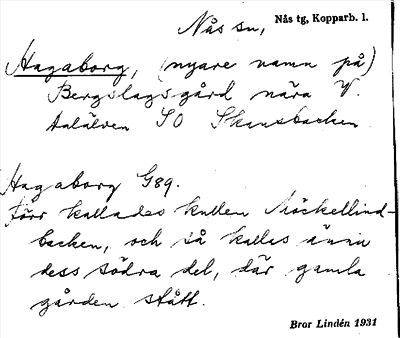 Nås sn,
Nås tg, Kopparb. l.
Hagaborg, (nyare namn på)
Bergslagsgård nära V.
Dalälven SO Skansbacken
Hagaborg G89.
Förr kallades kullen Möckellind-
backen, och så kallas ännu
dess södra del, där gamla
gården stått.
Bror Lindén 1931